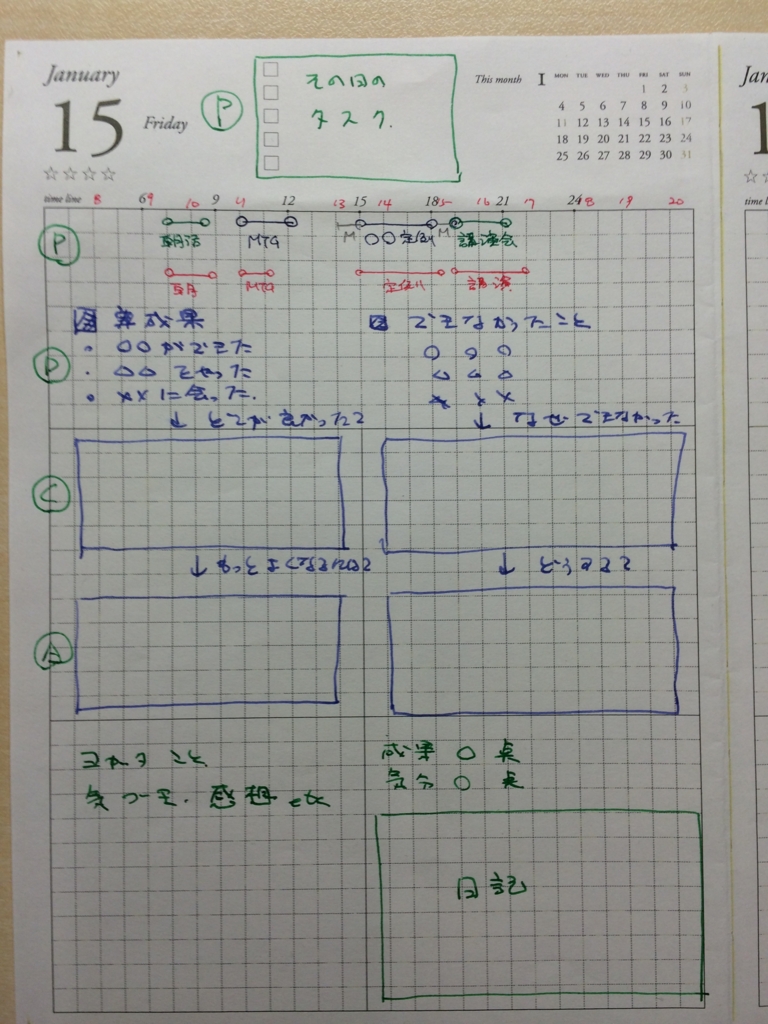 January
15
Friday
P
その日の
タスク.
This month 1
MON TUE WED THU FRI SAT SUN
1 2 3
4 5 6 7 8 9 10
11 12 13 14 15 16 17
18 19 20 21 22 23 24
25 26 27 28 29 30 31
time line 8 6 9 10 9 11 12 13 15 14 18 15 16 21 17 24 18 19 20
P
朝活 MTG M 〇〇定例 M 講演会
MTG 定例 講演
D
成果 できなかったこと
・〇〇ができた 〇 〇 〇
・△△をやった △ △ 〇
・××に会った. × × ×
↓ どこが良かった? ↓ なぜできなかった
C
↓ もっとよくなるには? ↓ どうする?
A
成果 〇 点
気分 〇 点
気づき、感想 etc
日記